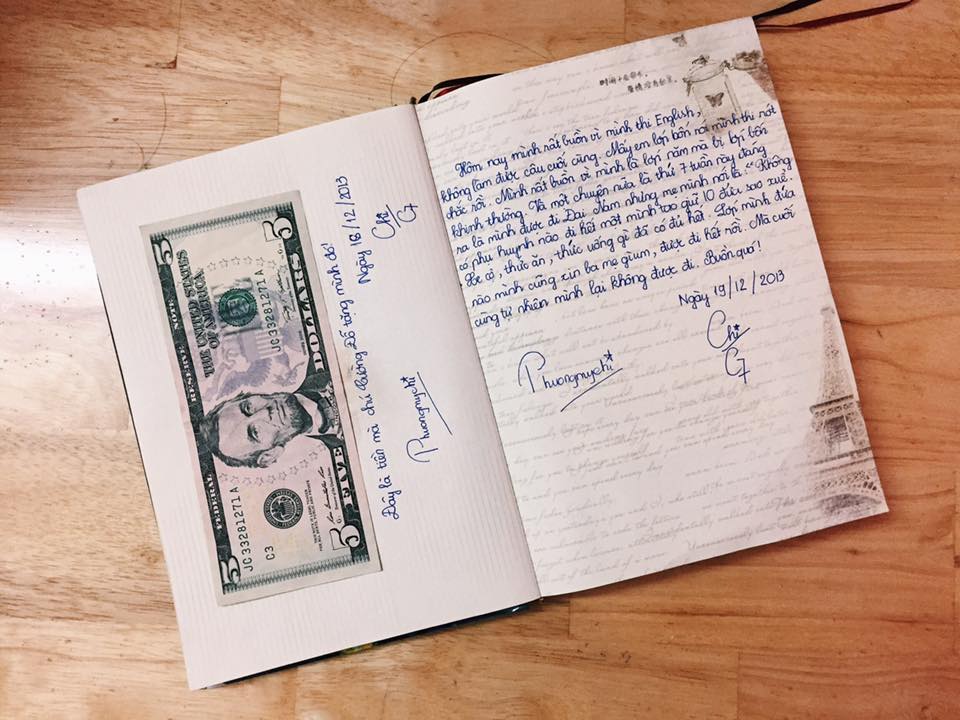 FEDERAL RESERVE NOTE
THE UNITED STATES
OF AMERICA
JC 33281271 A
JC 33281271 A
C3
5
5
5
5
FIVE DOLLARS
Đây là tiền mà chú Cường Đố tặng mình đó!
Ngày 18/12/2013
Phuongmychi
Chi
C7
Hôm nay mình rất buồn vì mình thi English,
không làm được câu cuối cùng. Mấy em lớp bốn nói mình thi nớt
chắc rồi. Mình rất buồn vì mình là lớp năm mà bị lớp bốn
khinh thường. Và một chuyện nữa là thứ 7 tuần này đáng
ra là mình được đi Đại Nam nhưng mẹ mình nói là: "Không
có phụ huynh nào đi hết một mình cô quả 10 đứa sao xuể.
Xe cộ, thức ăn, thức uống gì đã có đủ hết. Lớp mình đứa
nào mình cũng xin ba mẹ giùm, được đi hết rồi. Mà cuối
cùng tự nhiên mình lại không được đi. Buồn quá!
Ngày 19/12/2013
Phuongmychi
Chi
C7